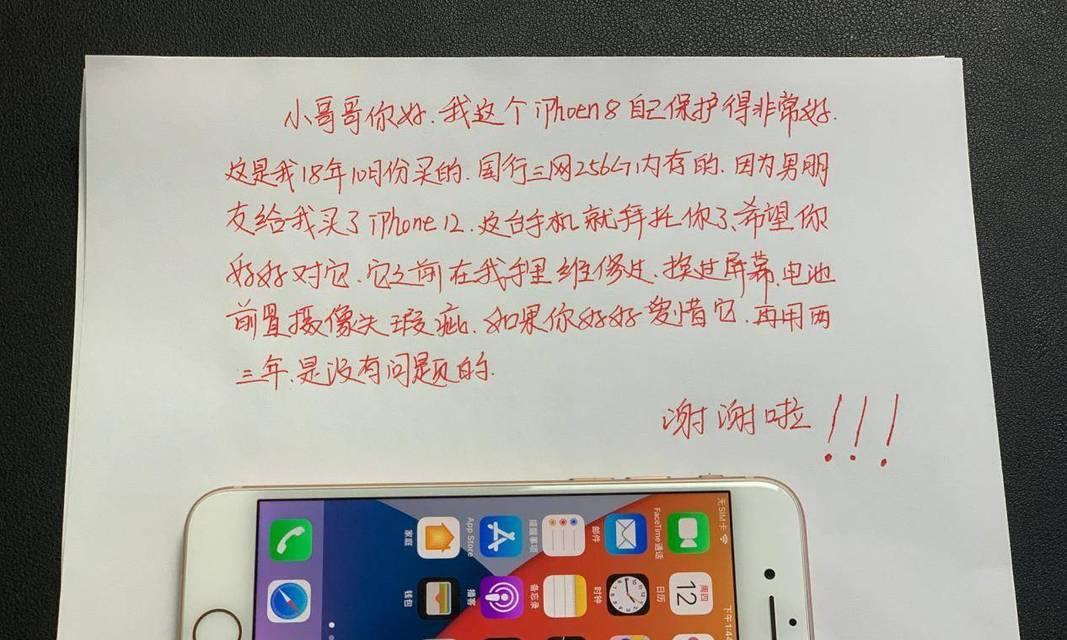 小哥哥你好.我这个iPhoen8自己保护得非常好.
这是我18年10月份买的.国行三网256G内存的.因为男朋
友给我买了iPhone12.这台手机就拜托你了.希望你
好好对它.它之前在我手里维修过.换过屏幕.电池
前置摄像头瑕疵.如果你好好爱惜它.再用两
三年.是没有问题的.
谢谢啦!!!
无SIM卡
下午1:4
FaceTime通话
周四
12
日历
邮件
时钟
提醒事项
备忘录
App Store
播客
家庭
钱包